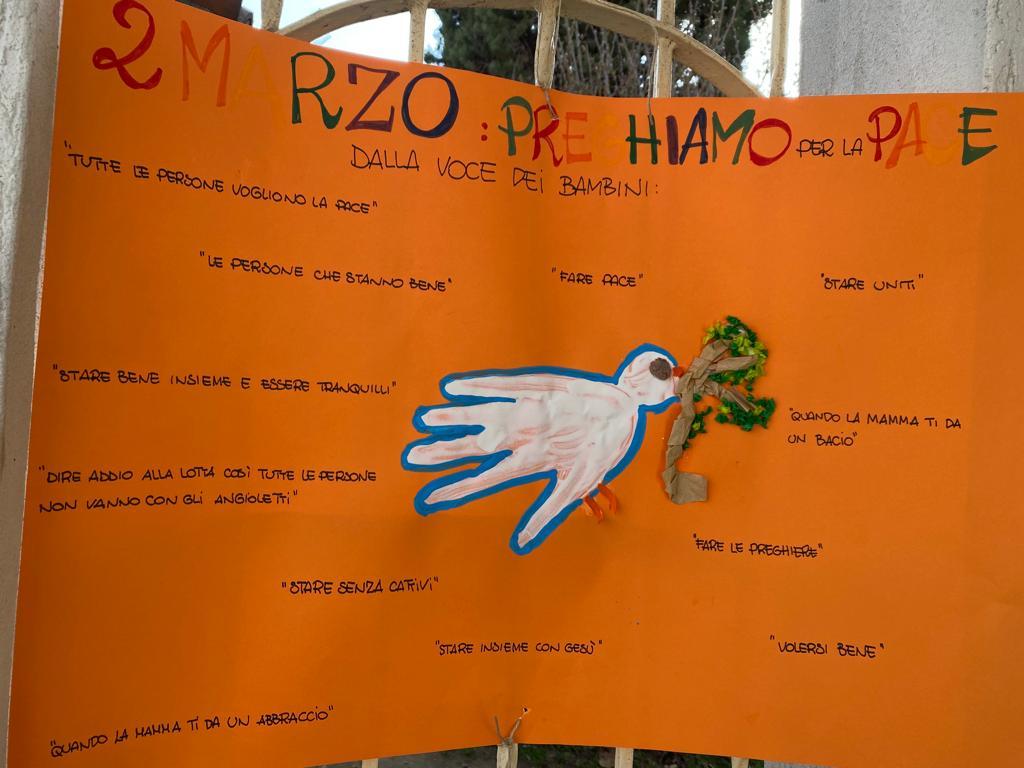 2 MARZO : PREGHIAMO PER LA PACE
DALLA VOCE DEI BAMBINI:
"TUTTE LE PERSONE VOGLIONO LA PACE"
"LE PERSONE CHE STANNO BENE"
"FARE PACE"
"STARE UNITI"
"STARE BENE INSIEME E ESSERE TRANQUILLI"
"QUANDO LA MAMMA TI DA
UN BACIO"
"DIRE ADDIO ALLA LOTTA COSÌ TUTTE LE PERSONE
NON VANNO CON GLI ANGIOLETTI"
"FARE LE PREGHIERE"
"STARE SENZA CATTIVI"
"STARE INSIEME CON GESÙ"
"VOLERSI BENE"
"QUANDO LA MAMMA TI DA UN ABBRACCIO"